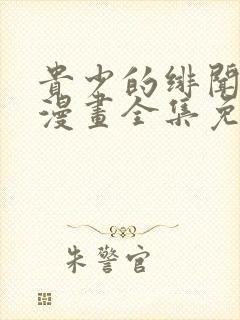 貴少的緋聞
漫畫全集免
朱警官